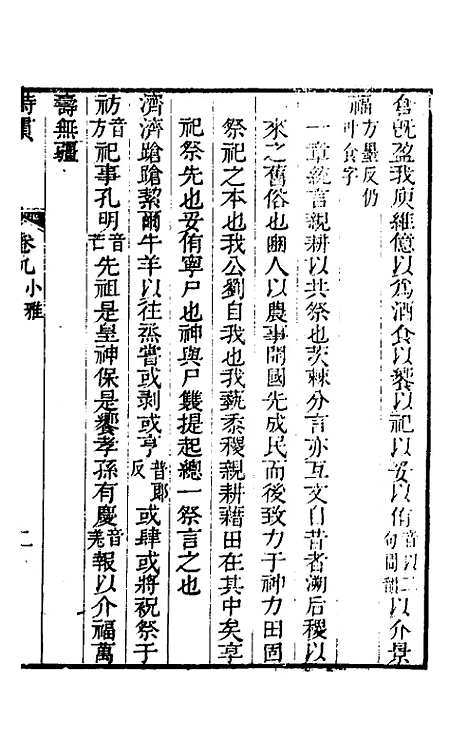 倉既盈我庾維億以爲酒食以饗以祀以妥以侑音以二句間韻以介景
福方墨反仍叶食字
一章統言親耕以共祭也茨棘分言亦互文自昔者溯后稷以
來之舊俗也豳人以農事開國先成民而後致力于神力田固
祭祀之本也我公劉自我也我蓺黍稷親耕藉田在其中矣享
祀祭先也妥侑寧尸也神與尸雙提起總一祭言之也
濟濟蹌蹌絜爾牛羊以往烝嘗或剥或亨普郎反或肆或將祝祭于
祊音方祀事孔明音芒先祖是皇神保是饗孝孫有慶音羌報以介福萬
壽無疆
詩貫 卷九 小雅 二